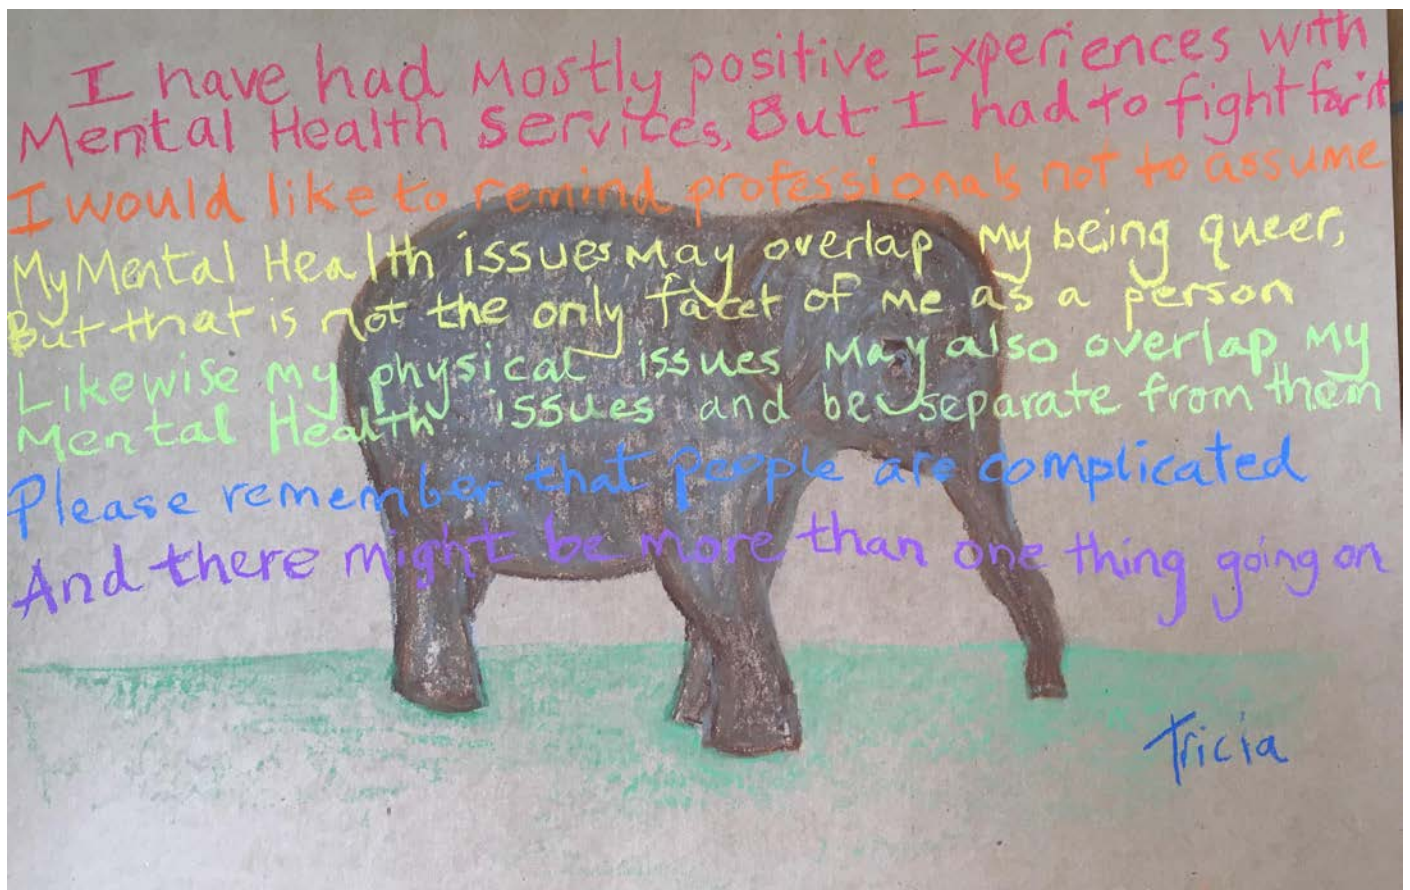 I have had Mostly positive Experiences with
Mental Health Services, But I had to fight for it
I would like to remind professionals not to assume
My Mental Health issues May overlap My being queer,
But that is not the only facet of me as a person
Likewise my physical issues May also overlap My
Mental Health issues and be separate from them
Please remember that people are complicated
And there might be more than one thing going on
Tricia